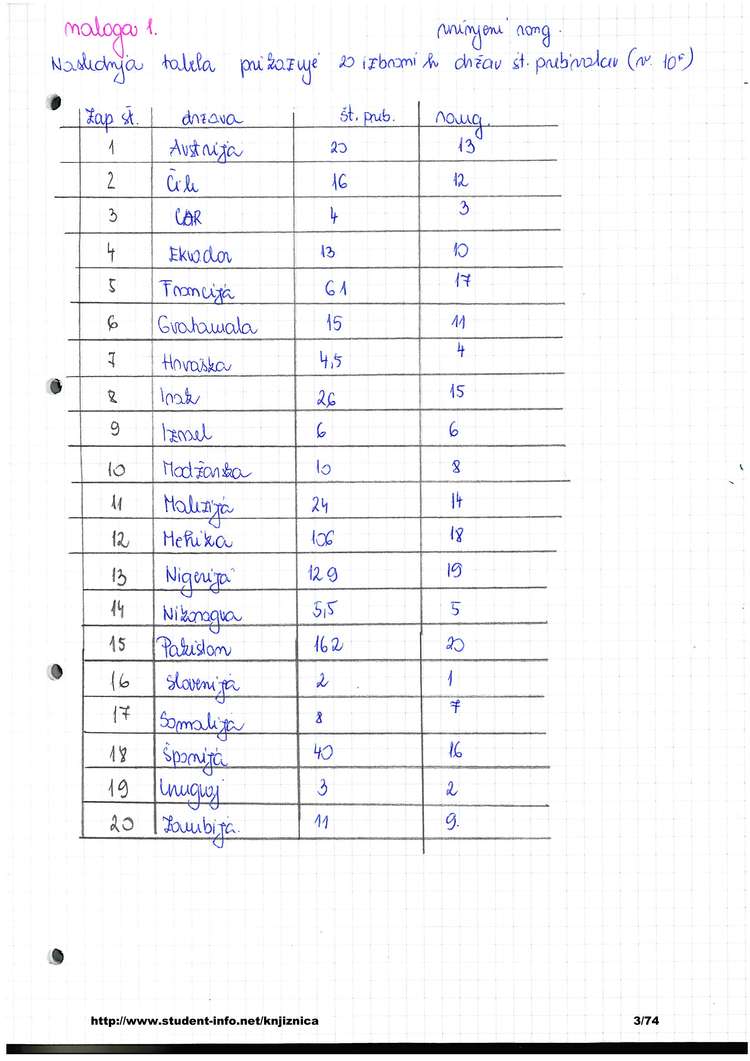 naloga 1.
urinjeni rang.
Naslednja tabela prikazuje 20 izbranih držav št. prebivalcev (v 10⁶)
Zap št. država št. preb. rang.
1 Avstrija 20 13
2 Čile 16 12
3 CAR 4 3
4 Ekvador 13 10
5 Francija 61 17
6 Gvatamala 15 11
7 Hrvaška 4,5 4
8 Irak 26 15
9 Izrael 6 6
10 Madžarska 10 8
11 Malezija 24 14
12 Mehika 106 18
13 Nigerija 129 19
14 Nikaragva 5,5 5
15 Pakistan 162 20
16 Slovenija 2 1
17 Somalija 8 7
18 Španija 40 16
19 Urugvaj 3 2
20 Zambija. 11 9.
http://www.student-info.net/knjiznica 3/74